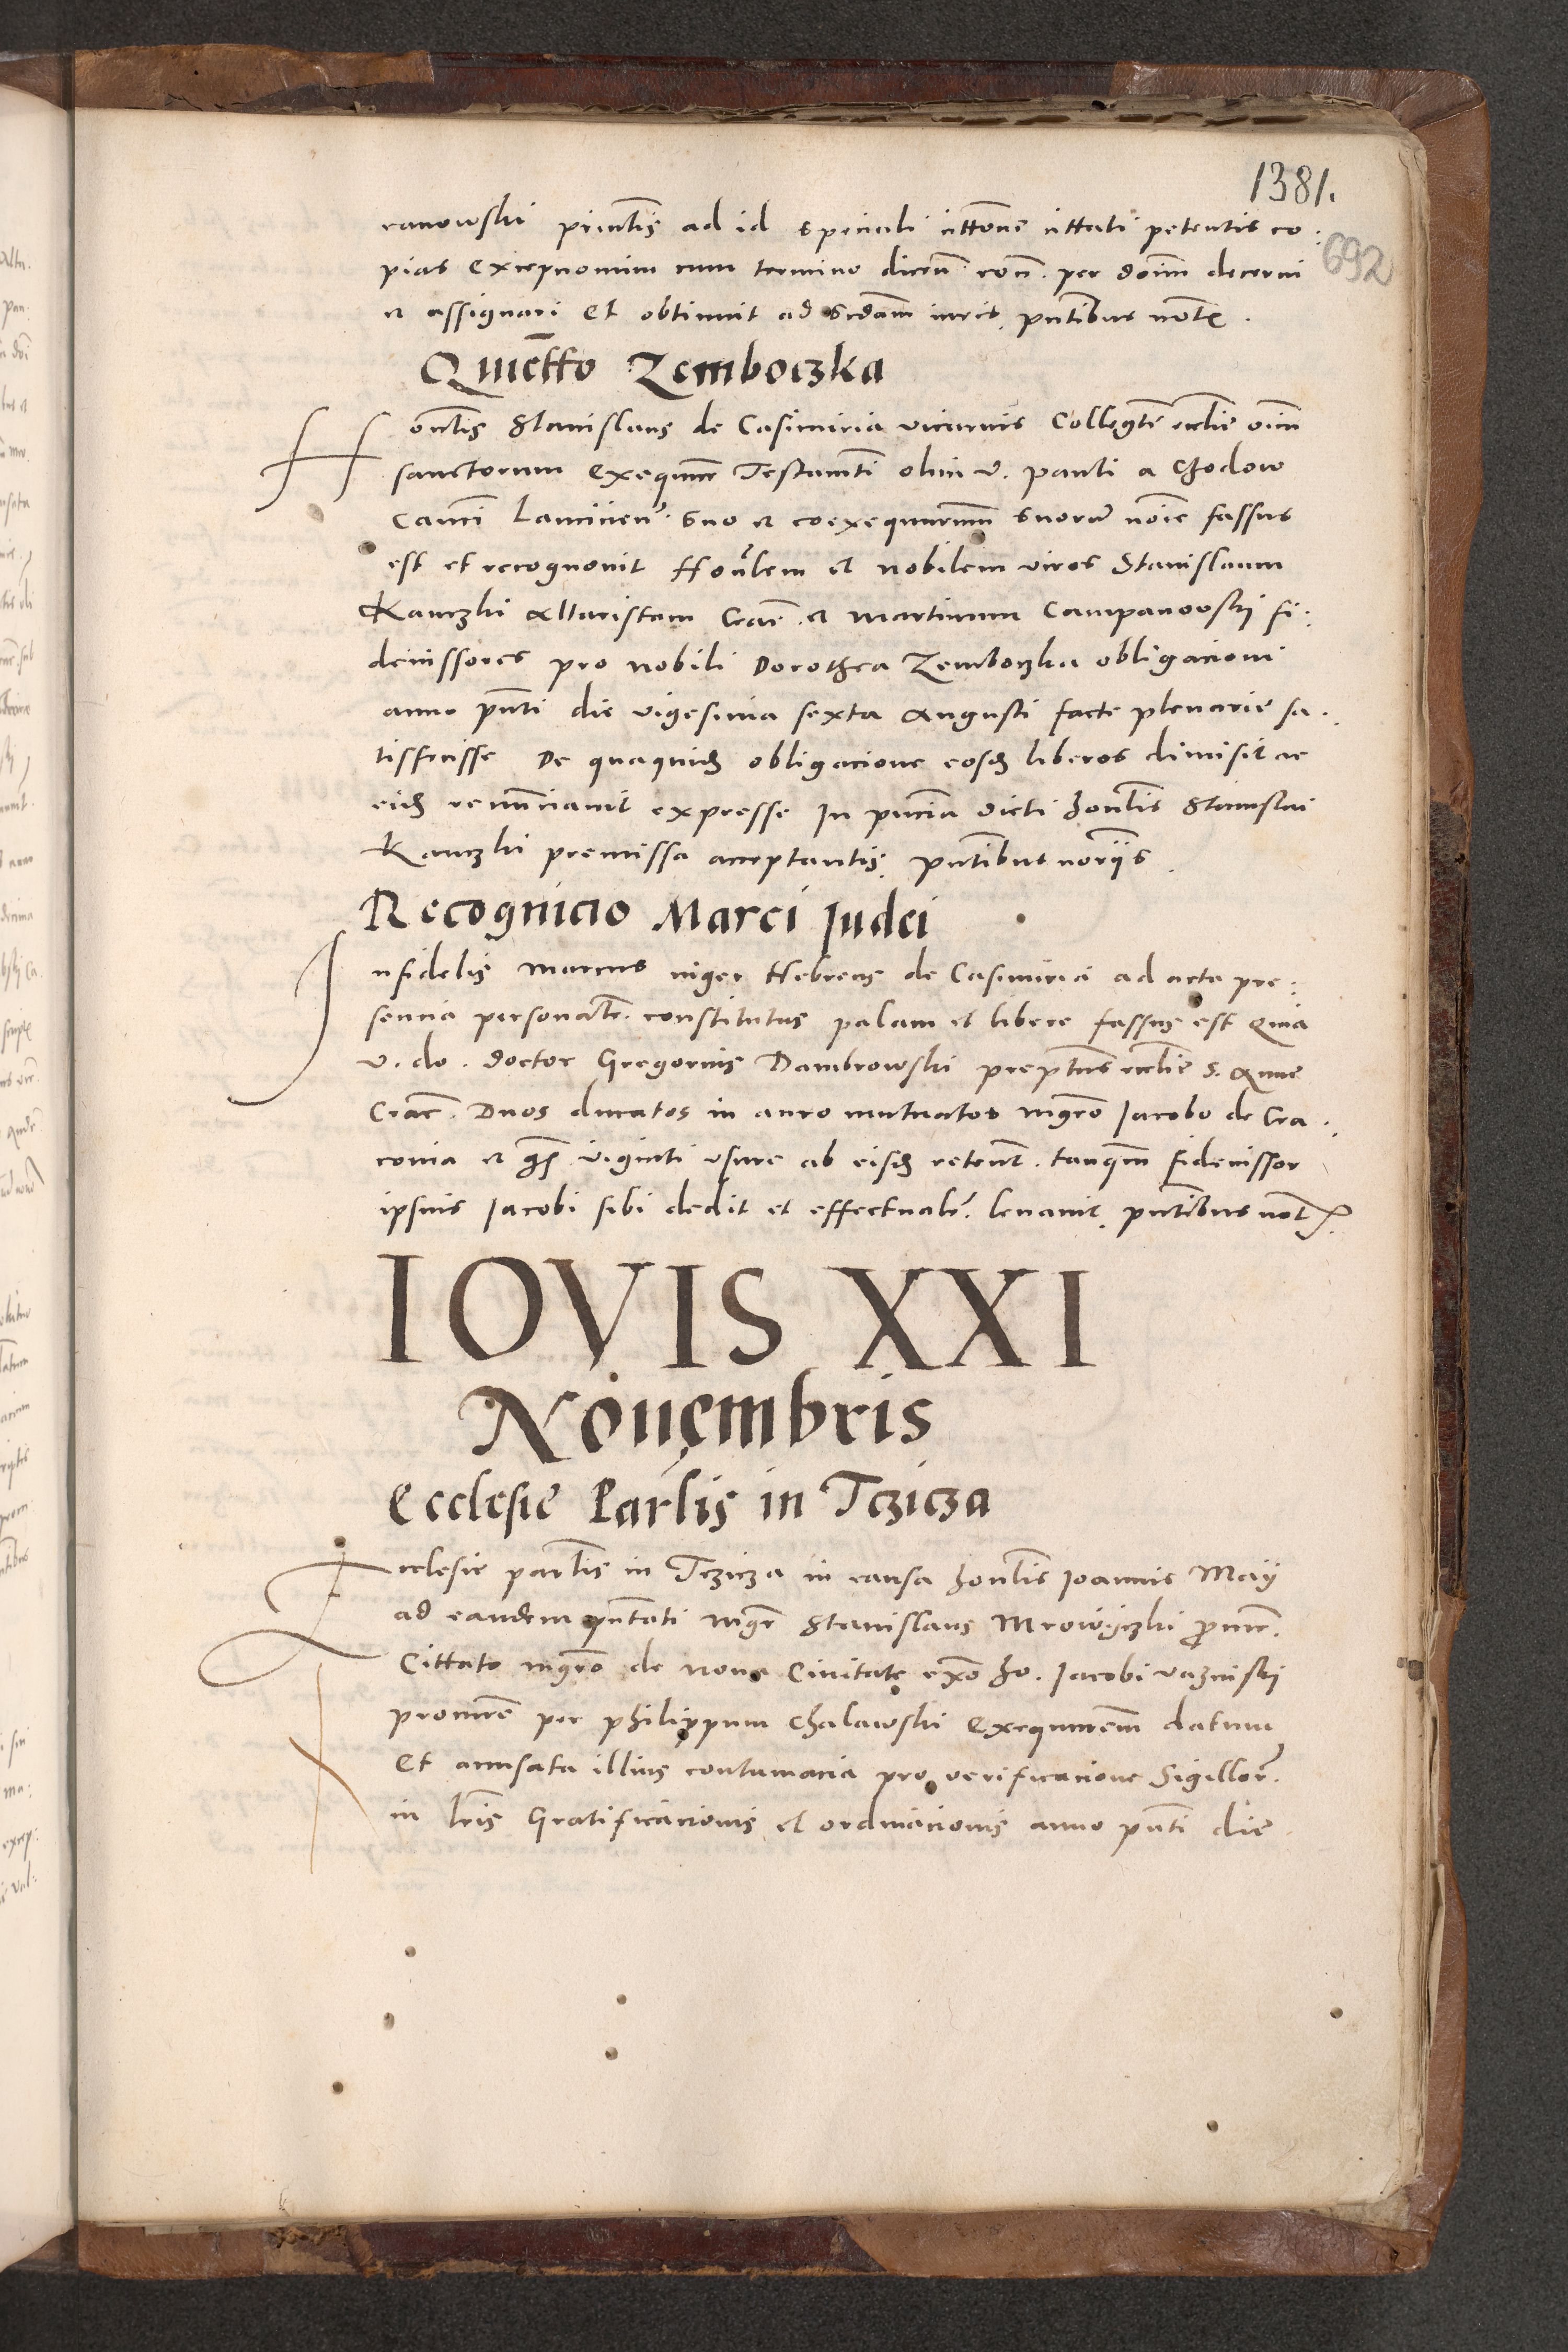 1381.
692
ranowski prīntis ad id speciali cittōne cittati petentis co:
pias Excepnominum cum termino dicen̄. con̄. per dom̄ decerni
et assignari Et obtinuit ad sedam iuris p̄ntibus not̄
Quiēttō Zemboczka
Honl̄is Stanislaus de Casimiria vicarius Collegt̄e eccl̄ie om̄
sanctorum Exequutor Testamt̄i olim v. pauli a Chodow
Canc̄i Lancicien̄. suo et coexequutorum suorū no͞ie fassus
est et recognovit Honl̄em et nobilem viros Stanislaum
Kanczki Altaristam Crac̄. et Martinum Campanowski fi:
deiussores pro nobili Dorothea Zemboczka obligacioni
anno p̄nti die vigesima sexta Augusti facte plenarie sa:
tisfecisse De quaquid̄ obligacione eosd̄ liberos dimisit ac
eid̄ renunciavit expresse In p̄ncia dicti honl̄is Stanislai
Kanczki premissa acceptantis, p̄ntibus noriis.
Recognicio Marci Judei
Infidelis marcus niger Hebreus de Casimiria ad acta pre:
sencia personalr̄. constitutus palam et libere fassus est Quia
v. do. doctor Gregorius Dambrowski prep̄tus eccl̄ie S. Anne
Crac̄. Duos ducatos in auro mutuatos mḡro Jacobo de Cra:
covia et gr̄. viginti usure ab eisd̄ retent̄. tanq̄m fideiussor
ipsius Jacobi sibi dedit et effectualr̄. levavit, p̄ntibus not̄
IOVIS XXI
Nouembris
Ecclesie Parl̄is in Tczicza
Ecclesie parl̄is in Tczicza in causa honl̄is Joannis May
ad eandem p̄ntati mgr̄ Stanislaus Mrowijczki p̄cur̄.
Cittato mḡro de nova Civitate ex͞o ho. Jacobi vazniski
procur̄em per philippum Chalawski Exequtorem datum
Et accusata illius contumacia pro verificacione Sigillor̄.
in l̄ris Gratificacionis et ordinacionis anno p̄nti die